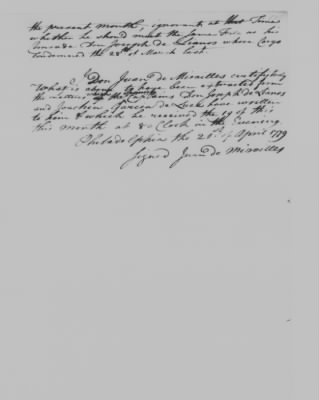 the present month, ignorant at that Time
whether he should meet the same Fate as his
Comrade Don Joseph de Llanos whose Cargo
Condemned the 28th of March last.
Don Juan de Miralles certifys by
What is above to have been extracted from
the Letters which the Captains Don Joseph de Llanos
and Joachim Garcia de Luca have written
to him & which he received the 19 of this
this month at 8 oClock in the Evening.
Philadelphia the 20th of April 1779
Signed Juan de Miralles